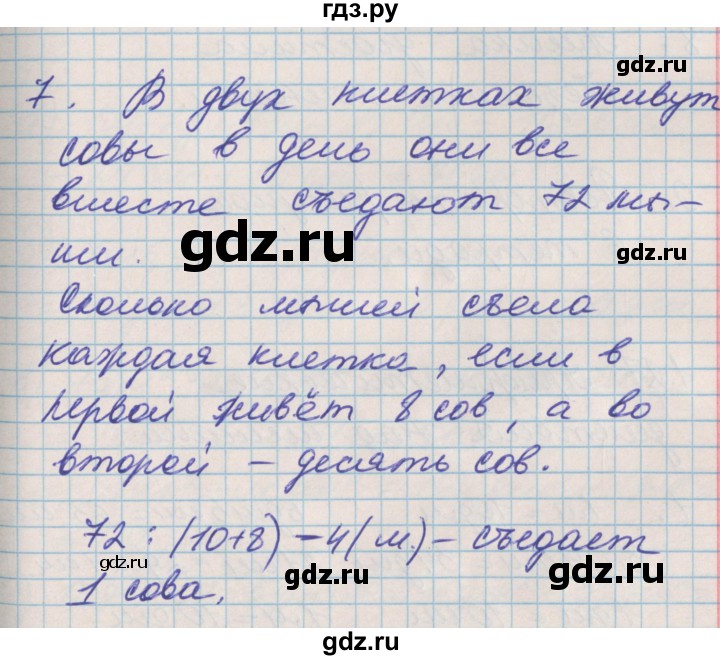 гдз.ру
gdz.ru
7. В двух клетках живут
совы в день они все
вместе съедают 72 мы-
ши.
gdz.ru
gdz.ru
gdz.ru
Сколько мышей съела
каждая клетка, если в
первой живёт 8 сов, а во
gdz.ru
gdz.ru
второй – десять сов.
72 : (10+8) = 4 (м.) – съедает
gdz.ru
gdz.ru
1 сова.
gdz.ru